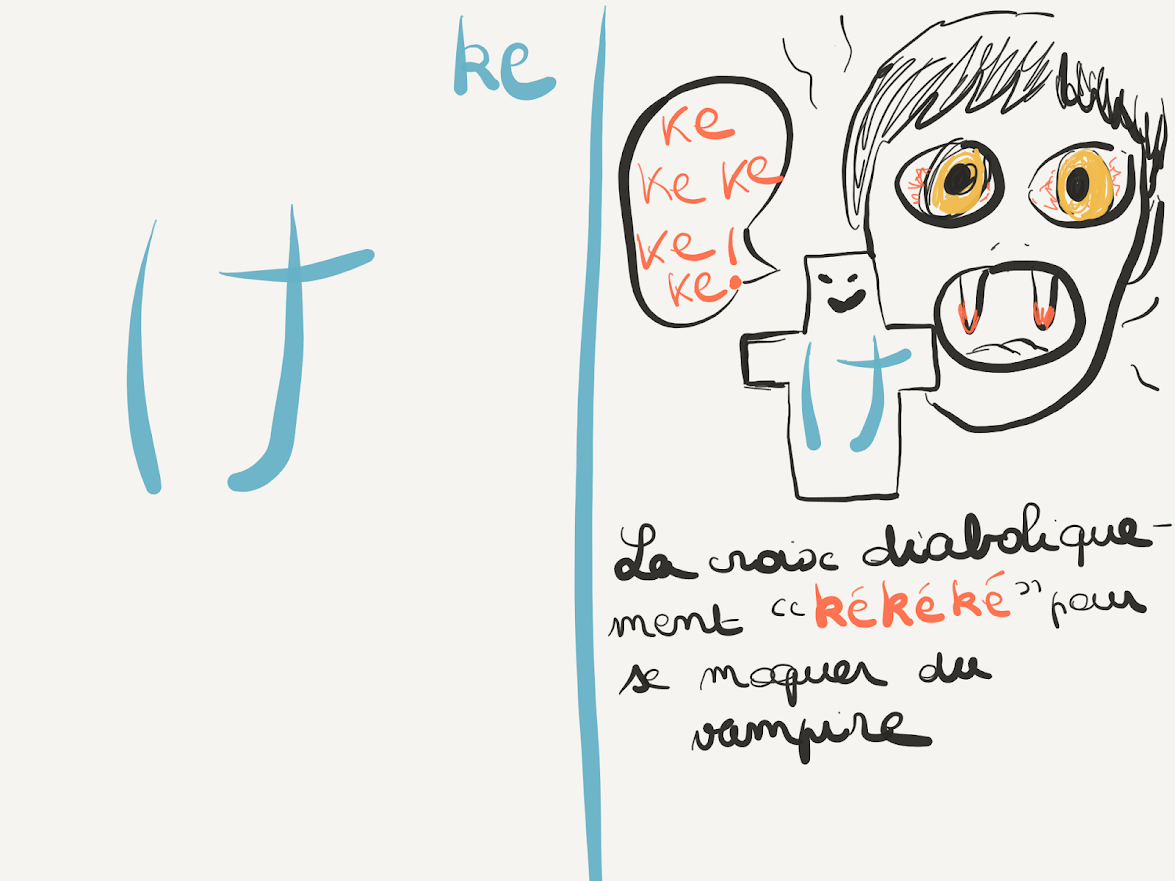 ke
け
ke
ke ke
ke !
ke
け
La croix diabolique-
ment “kékéké” pour
se moquer du
vampire